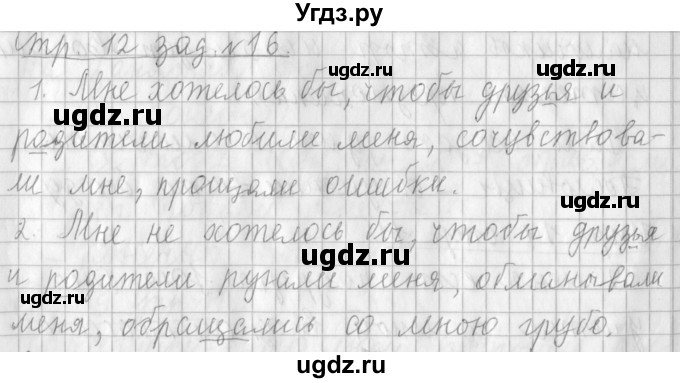 Угдз.ру
Стр. 12 зад. №16.
1. Мне хотелось бы, чтобы друзья и
родители любили меня, сочувствова-
ли мне, прощали ошибки.
2. Мне не хотелось бы, чтобы друзья
и родители ругали меня, обманывали
меня, обращались со мною грубо.
ugdz.ru
ugdz.ru
ugdz.ru
ugdz.ru
ugdz.ru
ugdz.ru
ugdz.ru
ugdz.ru
ugdz.ru
ugdz.ru
Угдз.ру